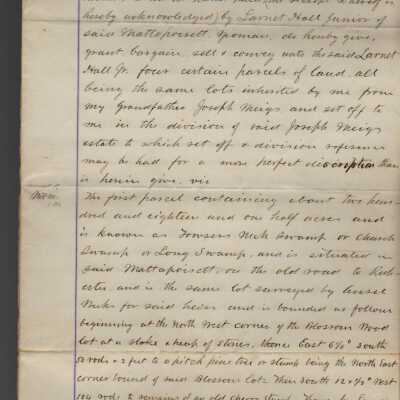 hereby acknowledged) by Larnet Hall Junior of
said Mattapoisett, Yeoman, do hereby give,
grant bargain, sell & convey unto the said Larnet
Hall Jr. four certain parcels of land all
being the same lots inherited by me from
my Grandfather Joseph Meigs and set off to
me in the division of said Joseph Meigs
estate to which set off & division reference
may be had for a more perfect discription than
is herein give. viz
The first parcel containing about two hun-
dred and eighteen and one half acres and
is known as Towsers Neck Swamp or Church
Swamp or Long Swamp, and is situated in
said Mattapoisett, on the old road to Roch-
ester and is the same lot surveyed by
for said heirs and is bounded as follows
beginning at the North West corner of the Blossom Wood
lot at a stake & heap of stones, thence East 6½° South
52 rods & 2 feet to a pitch pine tree or stump being the North East
corner bound of said Blossom lot. Then South 12 West
114 rods to remains of an old